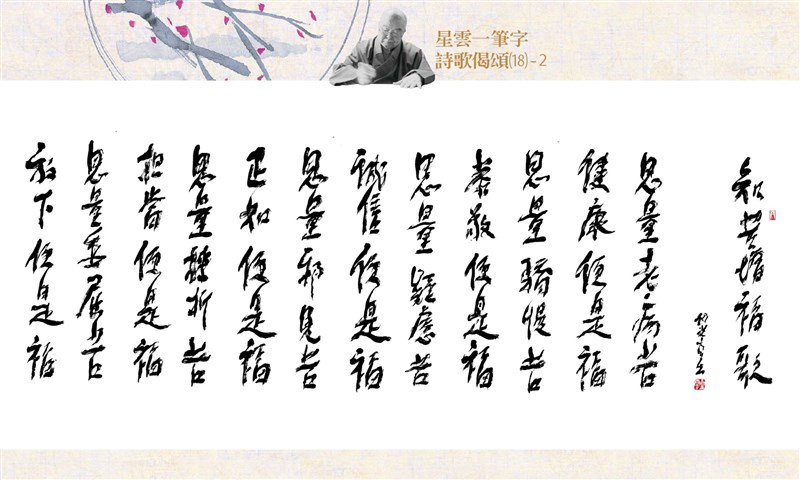 星雲一筆字
詩歌偈頌(18)-2
知苦增福歌
思量老病苦
健康便是福
思量驕慢苦
敬便是福
思量疑慮苦
誠信便是福
思量邪見苦
正知便是福
思量折苦
担當便是福
思量委屈苦
放下便是福